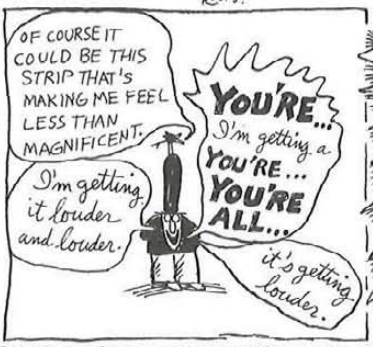 OF COURSE IT
COULD BE THIS
STRIP THAT'S
MAKING ME FEEL
LESS THAN
MAGNIFICENT.
YOU'RE...
I'm getting a
YOU'RE...
YOU'RE
ALL...
I'm getting
it louder
and louder.
it's getting
louder.